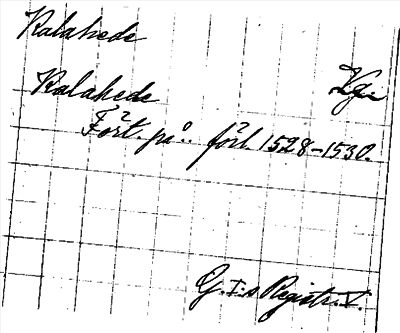 Kalahede
Kalahede Vg.
Fört. på. förl. 1528-1530.
G. I:s Registr. V.